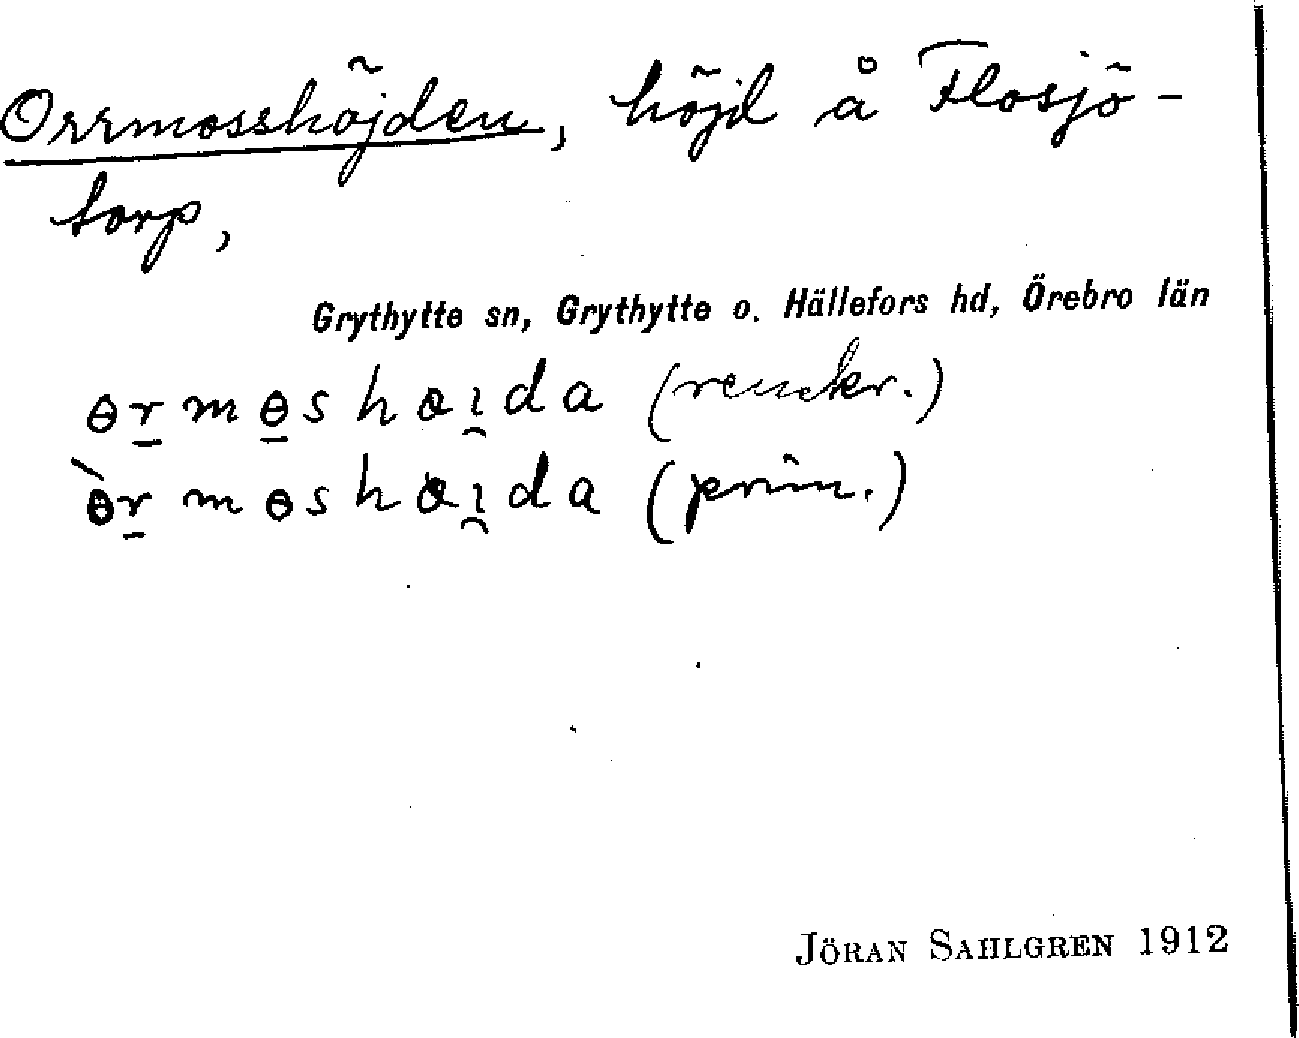 Orrmosshöjden, höjd å Flosjö-
torp,
Grythytte sn, Grythytte o. Hällefors hd, Örebro län
ɵr̲mɵ̲shɑı̯da (renskr.)
ɵ̀r̲mɵshɑı̯da (prim.)
JÖRAN SAHLGREN 1912